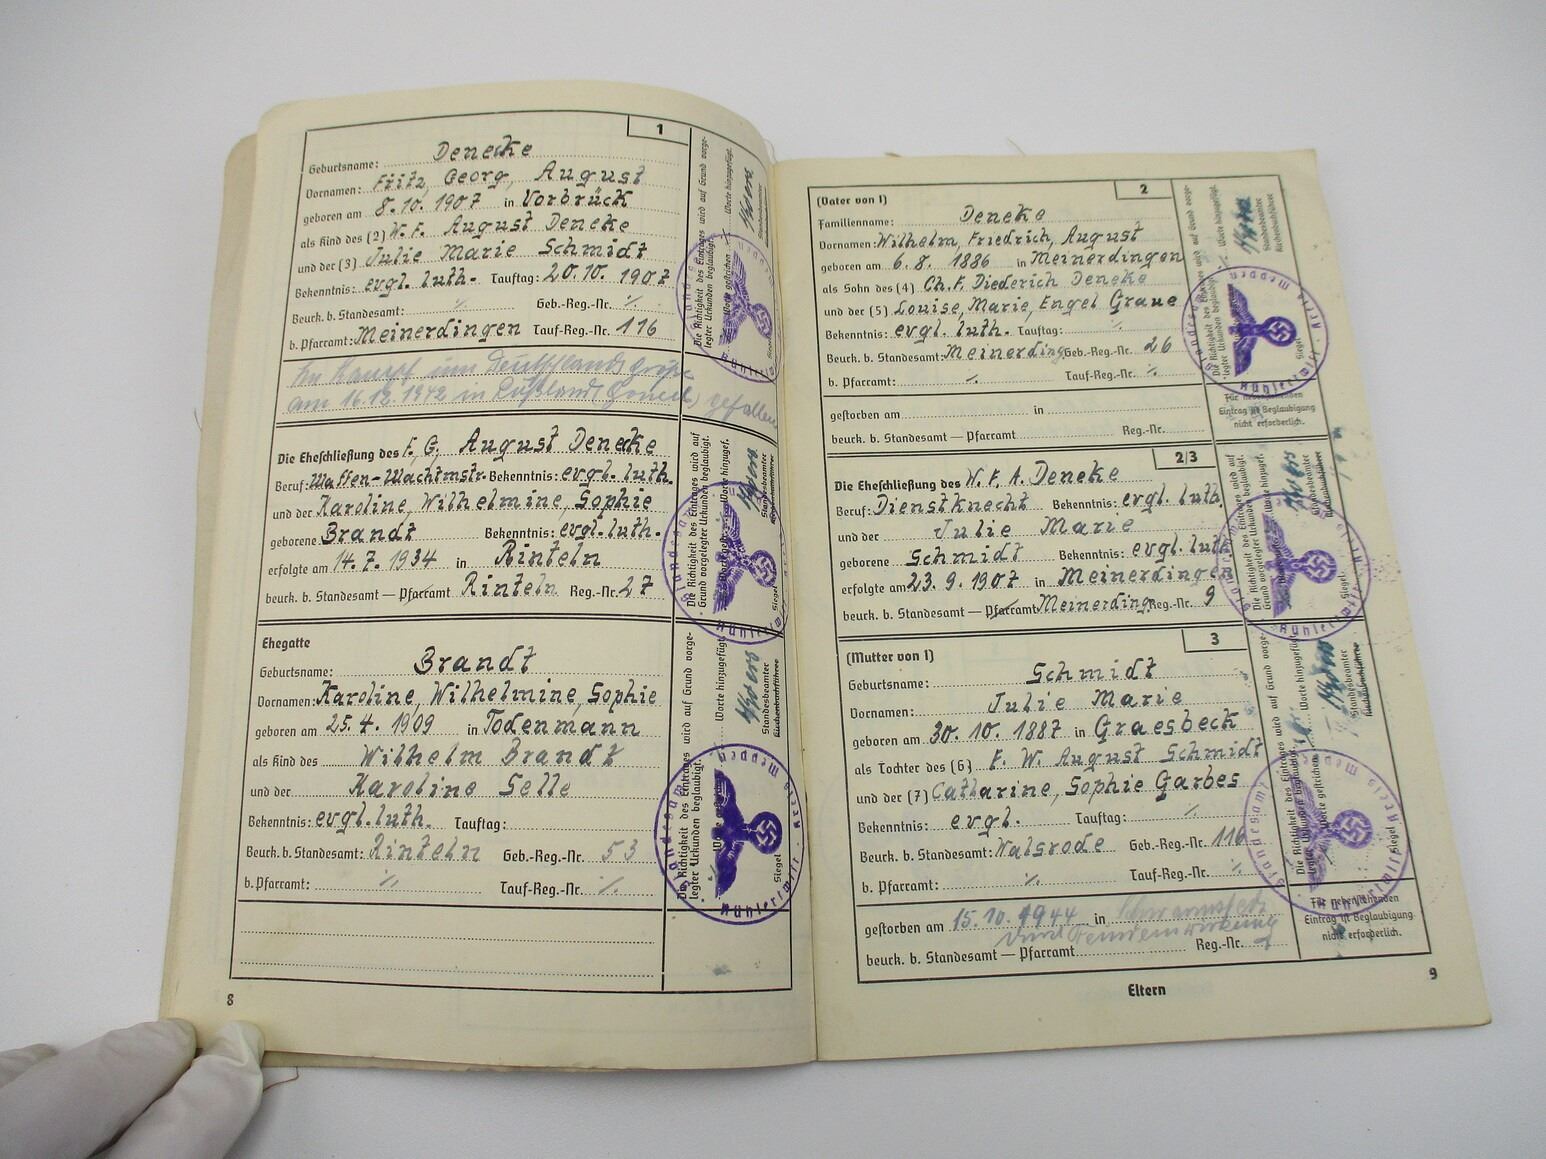 1
Geburtsname: Denecke
Vornamen: Fritz, Georg, August
geboren am 8. 10. 1907 in Vorbrück
als Kind des (2) W. F. August Deneke
und der (3) Julie Marie Schmidt
Bekenntnis: evgl. luth. Tauftag: 20. 10. 1907
Beurk. b. Standesamt: ./. Geb.-Reg.-Nr. ./.
b. Pfarramt: Meinerdingen Tauf-Reg.-Nr. 116
Im Kampf um Deutschlands
am 16.12.1942 in Rußland gefallen
Die Eheschließung des F. G. August Denecke
Beruf: Waffen-Wachtmstr. Bekenntnis: evgl. luth.
und der Karoline, Wilhelmine, Sophie
geborene Brandt Bekenntnis: evgl. luth.
erfolgte am 14. 7. 1934 in Rinteln
beurk. b. Standesamt — Pfarramt Rinteln Reg.-Nr. 27
Ehegatte
Geburtsname: Brandt
Vornamen: Karoline, Wilhelmine, Sophie
geboren am 25. 4. 1909 in Todenmann
als Kind des Wilhelm Brandt
und der Karoline Selle
Bekenntnis: evgl. luth. Tauftag:
Beurk. b. Standesamt: Rinteln Geb.-Reg.-Nr. 53
b. Pfarramt: ./. Tauf-Reg.-Nr. ./.
Die Richtigkeit des Eintrages wird auf Grund vorge-
legter Urkunden beglaubigt.
Worte gestrichen Worte hinzugefügt.
Standesbeamter
Siegel
Die Richtigkeit des Eintrages wird auf
Grund vorgelegter Urkunden beglaubigt.
Worte hinzugef.
Standesbeamter
Kirchenbuchführer
Siegel
Die Richtigkeit des Eintrages wird auf Grund vorge-
legter Urkunden beglaubigt.
Worte hinzugefügt.
Standesbeamter
Kirchenbuchführer
Siegel
8
2
(Vater von 1)
Familienname: Deneke
Vornamen: Wilhelm, Friedrich, August
geboren am 6. 8. 1886 in Meinerdingen
als Sohn des (4) Ch. F. Diederich Deneke
und der (5) Louise, Marie, Engel Graue
Bekenntnis: evgl. luth. Tauftag: ./.
Beurk. b. Standesamt: Meinerding Geb.-Reg.-Nr. 26
b. Pfarramt: ./. Tauf-Reg.-Nr. ./.
gestorben am in
beurk. b. Standesamt — Pfarramt Reg.-Nr.
2/3
Die Eheschließung des W. F. A. Deneke
Beruf: Dienstknecht Bekenntnis: evgl. luth.
und der Julie Marie
geborene Schmidt Bekenntnis: evgl. luth.
erfolgte am 23. 9. 1907 in Meinerdingen
beurk. b. Standesamt — Pfarramt Meinerding. Reg.-Nr. 9
3
(Mutter von 1)
Geburtsname: Schmidt
Vornamen: Julie Marie
geboren am 30. 10. 1887 in Graesbeck
als Tochter des (6) F. W. August Schmidt
und der (7) Catharine, Sophie Garbes
Bekenntnis: evgl. Tauftag: ./.
Beurk. b. Standesamt: Walsrode Geb.-Reg.-Nr. 116
b. Pfarramt: ./. Tauf-Reg.-Nr. ./.
gestorben am 15. 10. 1944 in
durch Feindeinwirkung
beurk. b. Standesamt — Pfarramt Reg.-Nr.
Die Richtigkeit des Eintrages wird auf Grund vorge-
legter Urkunden beglaubigt.
Worte hinzugefügt.
Standesbeamter
Kirchenbuchführer
Siegel
Für nebenstehenden
Eintrag ist Beglaubigung
nicht erforderlich.
Die Richtigkeit des Eintrages wird auf
Grund vorgelegter Urkunden beglaubigt.
Worte hinzugef.
Standesbeamter
Kirchenbuchführer
Siegel
Die Richtigkeit des Eintrages wird auf Grund vorge-
legter Urkunden beglaubigt.
Worte gestrichen, Worte hinzugefügt.
Standesbeamter
Kirchenbuchführer
Siegel
Für nebenstehenden
Eintrag ist Beglaubigung
nicht erforderlich.
Eltern
9